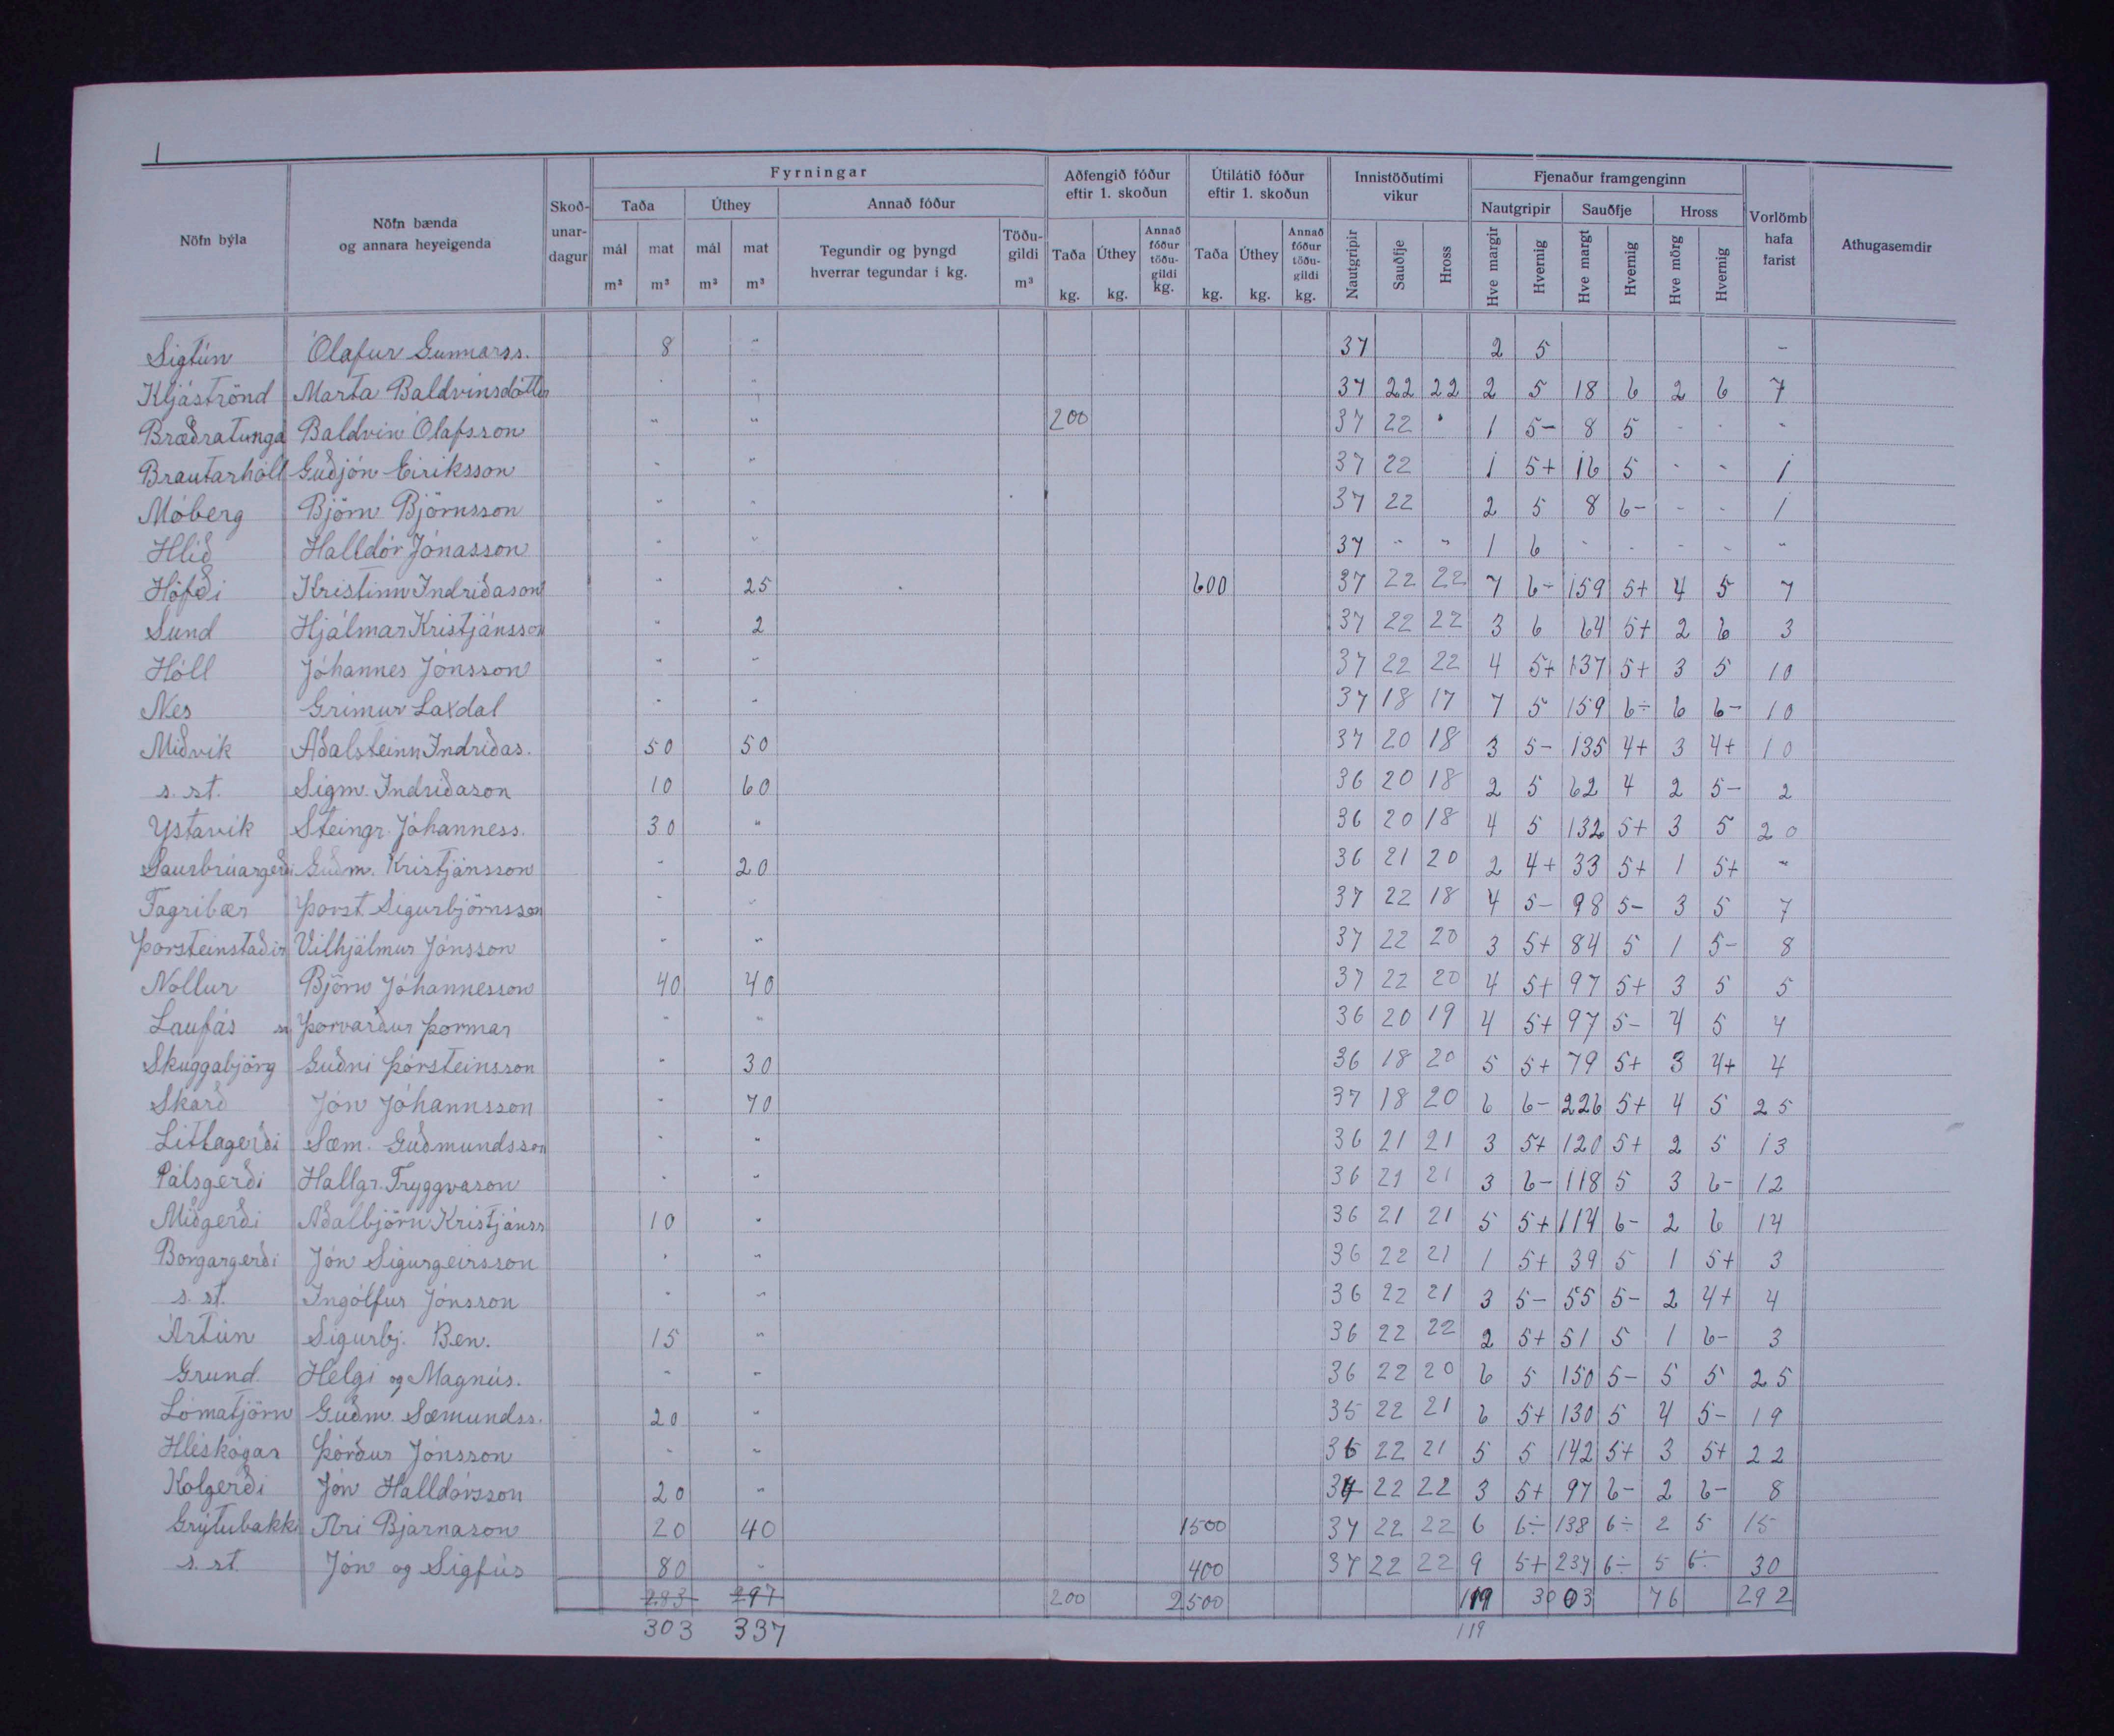 1
Fyrningar
Aðfengið fóður eftir 1. skoðun
Útilátið fóður eftir 1. skoðun
Innistöðutimi vikur
Fjenaður framgenginn
Nöfn býla
Nöfn bænda og annara heyeigenda
Skoð-unar-dagur
Taða
Úthey
Annað fóður
Nautgripir
Sauðfje
Hross
Vorlömb hafa farist
Athugasemdir
mál m³
mat m³
mál m³
mat m³
Tegundir og þyngd hverrar tegundar i kg.
Töðu-gildi m³
Taða kg.
Úthey kg.
Annað fóður töðu-gildi kg.
Taða kg.
Úthey kg.
Annað fóður töðu-gildi kg.
Nautgripir
Sauðfje
Hross
Hve margir
Hvernig
Hve margt
Hvernig
Hve mörg
Hvernig
Sigtún Ólafur Gunnarss. 8 " 37 2 5 -
Kljáströnd Marta Baldvinsdóttir " " 37 22 22 2 5 18 6 2 6 7
Bræðratunga Baldvin Ólafsson " " 200 37 22 " 1 5- 8 5 - - -
Brautarhóll Guðjón Eiriksson " " 37 22 1 5+ 16 5 - - 1
Móberg Björn Björnsson " " 37 22 2 5 8 6- - - 1
Hlíð Halldór Jónasson " " 37 " " 1 6 - - - - "
Höfði Kristinn Indriðason " 25 600 37 22 22 7 6- 159 5+ 4 5 7
Sund Hjálmar Kristjánsson " 2 37 22 22 3 6 64 5+ 2 6 3
Hóll Jóhannes Jónsson " " 37 22 22 4 5+ 137 5+ 3 5 10
Nes Grimur Laxdal " " 37 18 17 7 5 159 6÷ 6 6- 10
Miðvik Aðalsteinn Indriðas. 50 50 37 20 18 3 5- 135 4+ 3 4+ 10
s. st. Sigm. Indriðason 10 60 36 20 18 2 5 62 4 2 5- 2
Ystavik Steingr. Jóhanness. 30 " 36 20 18 4 5 132 5+ 3 5 20
Saurbrúargerði Guðm. Kristjánsson " 20 36 21 20 2 4+ 33 5+ 1 5+ "
Fagribær Þorst. Sigurbjörnsson " " 37 22 18 4 5- 98 5- 3 5 7
Þorsteinstaðir Vilhjálmur Jónsson " " 37 22 20 3 5+ 84 5 1 5- 8
Nollur Björn Jóhannesson 40 40 37 22 20 4 5+ 97 5+ 3 5 5
Laufás Þorvarður Þormar " " 36 20 19 4 5+ 97 5- 4 5 4
Skuggabjörg Guðni Þórsteinsson " 30 36 18 20 5 5+ 79 5+ 3 4+ 4
Skarð Jón Jóhannsson " 70 37 18 20 6 6- 226 5+ 4 5 25
Litlagerði Sæm. Guðmundsson " " 36 21 21 3 5+ 120 5+ 2 5 13
Pálsgerði Hallgr. Tryggvason " " 36 21 21 3 6- 118 5 3 6- 12
Miðgerði Aðalbjörn Kristjánss 10 " 36 21 21 5 5+ 114 6- 2 6 14
Borgargerði Jón Sigurgeirsson " " 36 22 21 1 5+ 39 5 1 5+ 3
s. st. Ingólfur Jónsson " " 36 22 21 3 5- 55 5- 2 4+ 4
Ártún Sigurbj. Ben. 15 " 36 22 22 2 5+ 51 5 1 6- 3
Grund Helgi og Magnús. " " 36 22 20 6 5 150 5- 5 5 25
Lómatjörn Guðm. Sæmundss. 20 " 35 22 21 6 5+ 130 5 4 5- 19
Hléskógar Þórður Jónsson " " 36 22 21 5 5 142 5+ 3 5+ 22
Kolgerði Jón Halldórsson 20 " 37 22 22 3 5+ 97 6- 2 6- 8
Grýtubakki Ari Bjarnason 20 40 1500 37 22 22 6 6÷ 138 6÷ 2 5 15
s. st. Jón og Sigfús 80 " 400 37 22 22 9 5+ 237 6÷ 5 6÷ 30
283 297 200 2500 119 3003 76 292
303 337 119